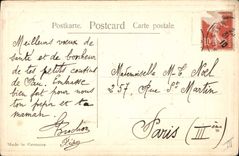 Postkarte. Postcard Carte postale.
Meilleurs vœux de
santé et de bonheur
de tes petits cousins
de Pau. Embrasse
bien fort pour nous
ton papa et ta
maman.
Mademoiselle M. L. Noël
257, Rue St Martin
Paris (III ème)
Made in Germany